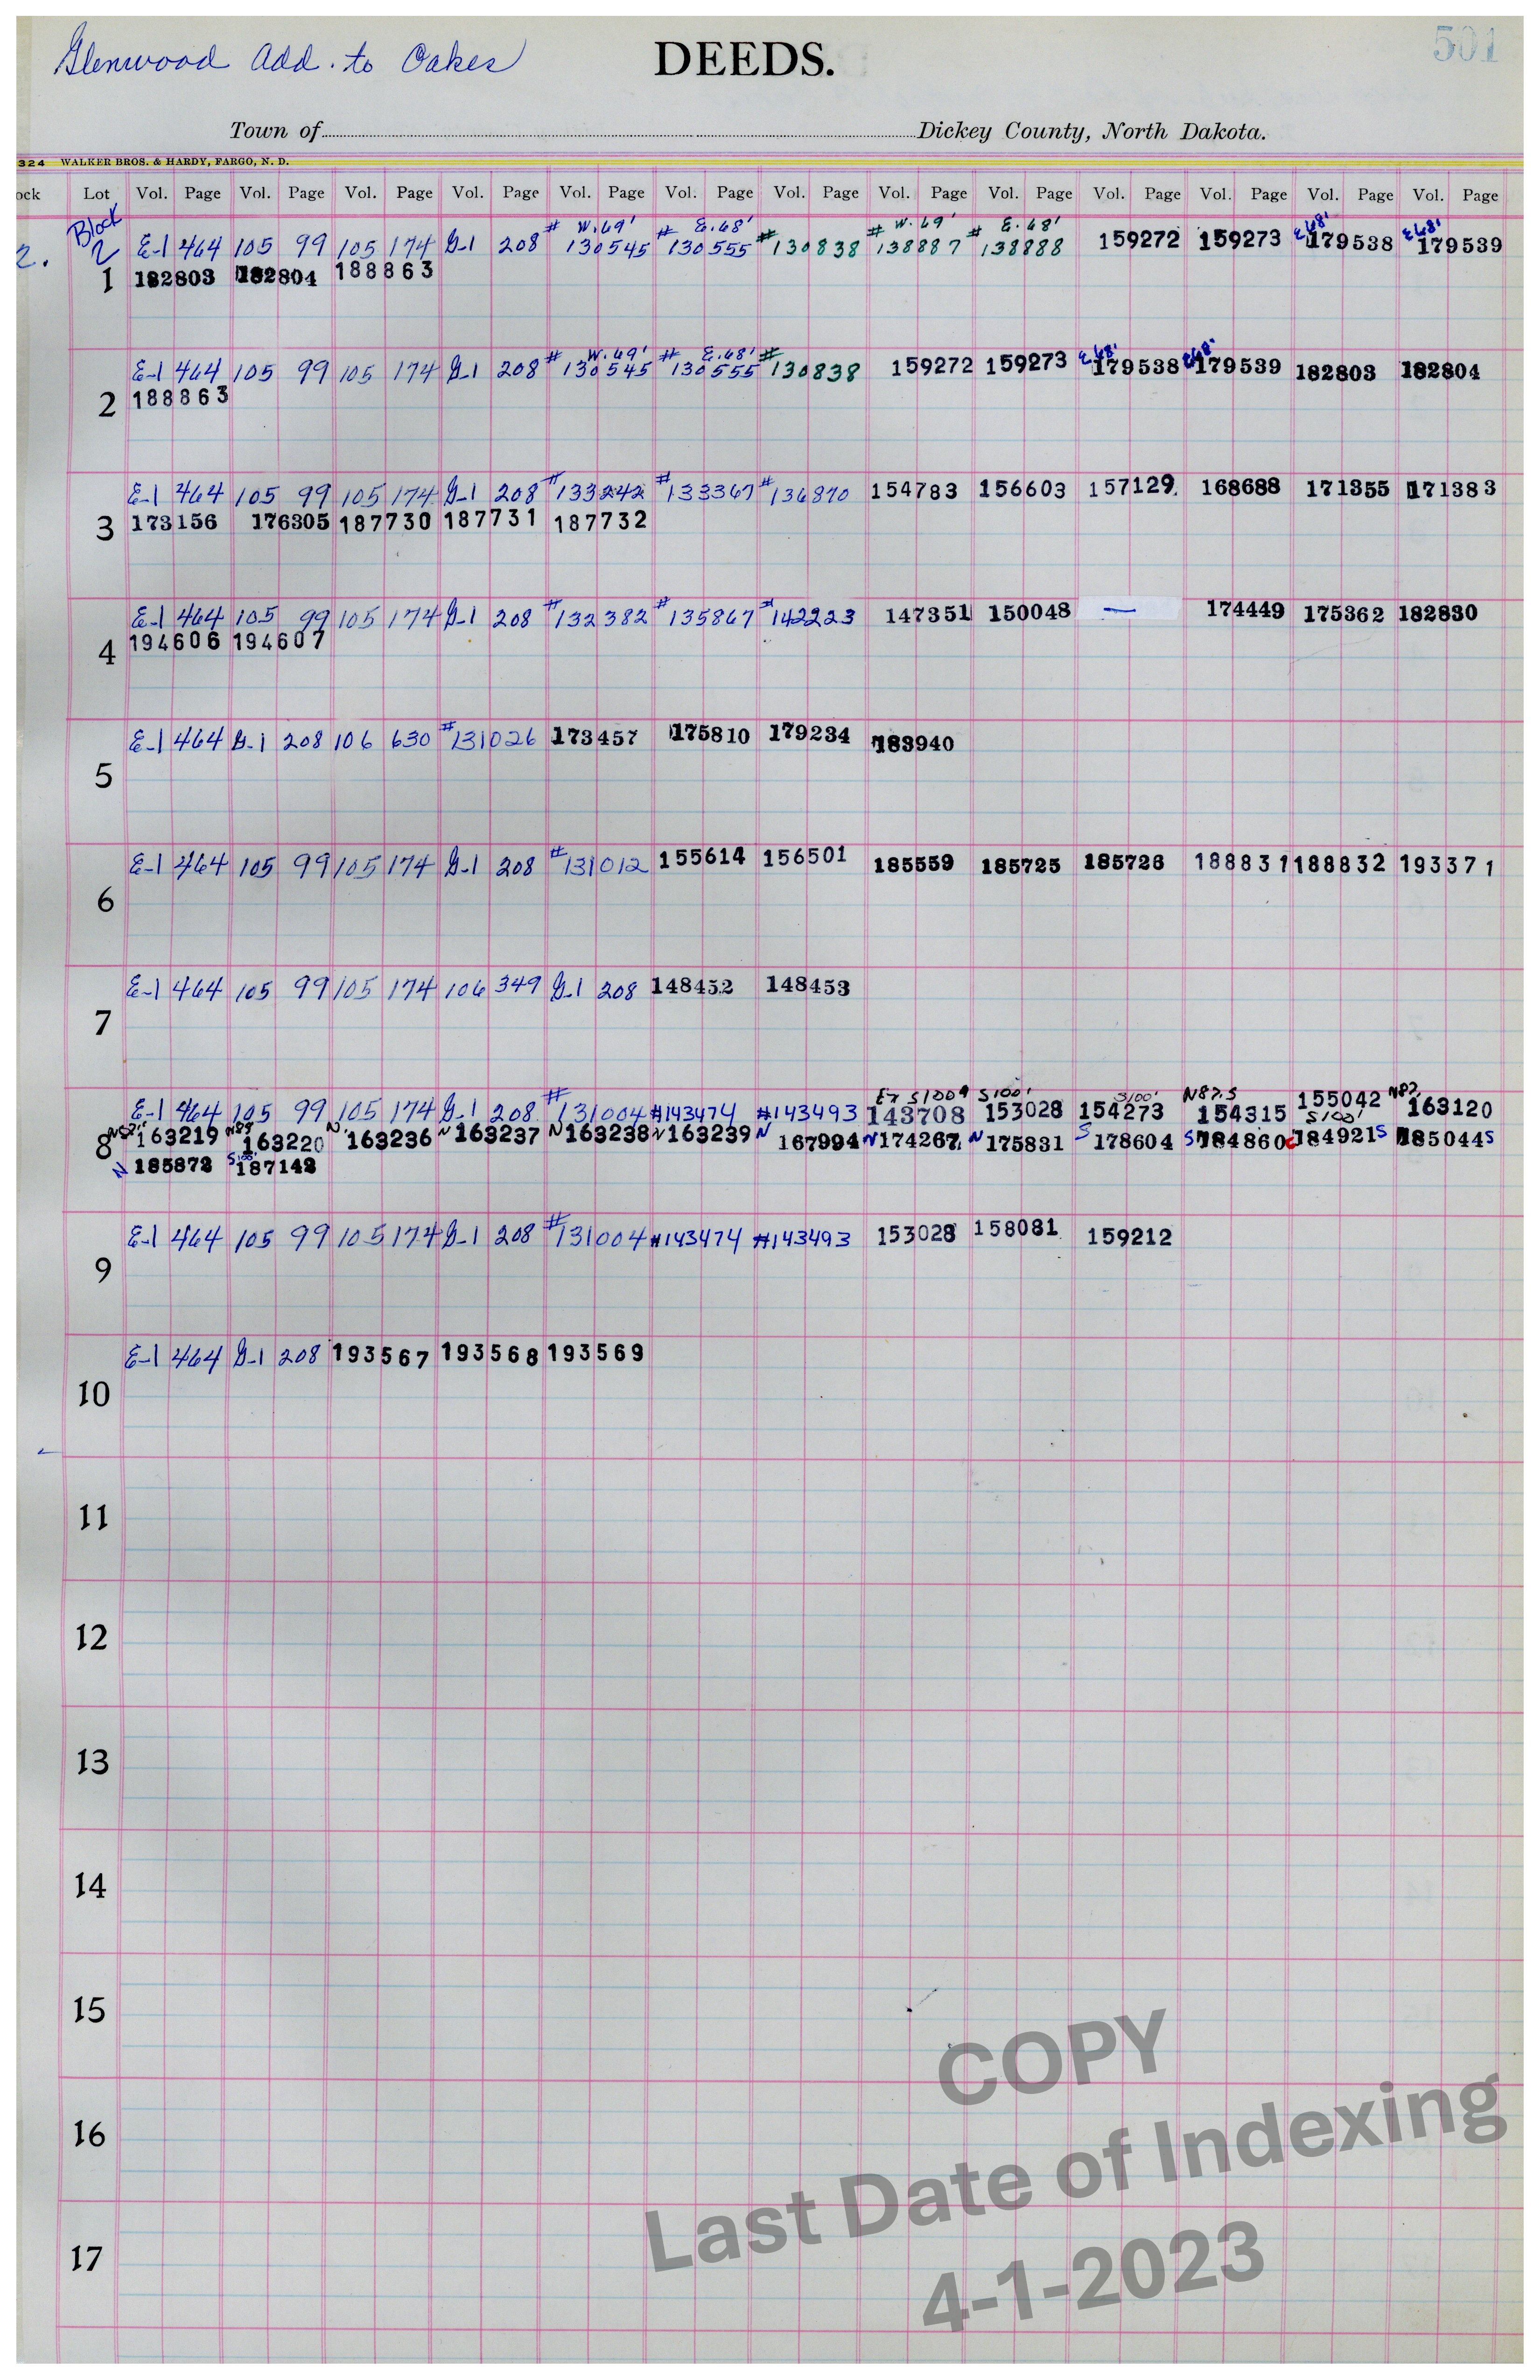 Glenwood Add. to Oakes DEEDS. 501
Town of Dickey County, North Dakota.
324 WALKER BROS. & HARDY, FARGO, N. D.
ock Lot Vol. Page Vol. Page Vol. Page Vol. Page Vol. Page Vol. Page Vol. Page Vol. Page Vol. Page Vol. Page Vol. Page Vol. Page Vol. Page
Block # W. 69' # E. 68' # # W. 69' # E. 68' E 68' E 68'
2. 2 E-1 464 105 99 105 174 G-1 208 130545 130555 130838 138887 138888 159272 159273 179538 179539
1 182803 182804 188863
# W. 69' # E. 68' # E 68' E 68'
E-1 464 105 99 105 174 G-1 208 130545 130555 130838 159272 159273 179538 179539 182803 182804
2 188863
E-1 464 105 99 105 174 G-1 208 #133242 #133367 #136870 154783 156603 157129 168688 171355 171383
3 173156 176305 187730 187731 187732
E-1 464 105 99 105 174 G-1 208 #132382 #135867 #142223 147351 150048 — 174449 175362 182830
4 194606 194607
E-1 464 G-1 208 106 630 #131026 173457 175810 179234 183940
5
E-1 464 105 99 105 174 G-1 208 #131012 155614 156501 185559 185725 185726 188831 188832 193371
6
E-1 464 105 99 105 174 106 349 G-1 208 148452 148453
7
Ex S100' S100' S100' N87.5 N87
E-1 464 105 99 105 174 G-1 208 #131004 #143474 #143493 143708 153028 154273 154315 155042 163120
S100'
8 163219 163220 N 163236 N 163237 N 163238 N 163239 N 167994 N 174267 N 175831 S 178604 S 184860 184921 S 185044 S
N 185872 S100' 187142
E-1 464 105 99 105 174 G-1 208 #131004 #143474 #143493 153028 158081 159212
9
E-1 464 G-1 208 193567 193568 193569
10
11
12
13
14
15
16
17
COPY
Last Date of Indexing
4-1-2023